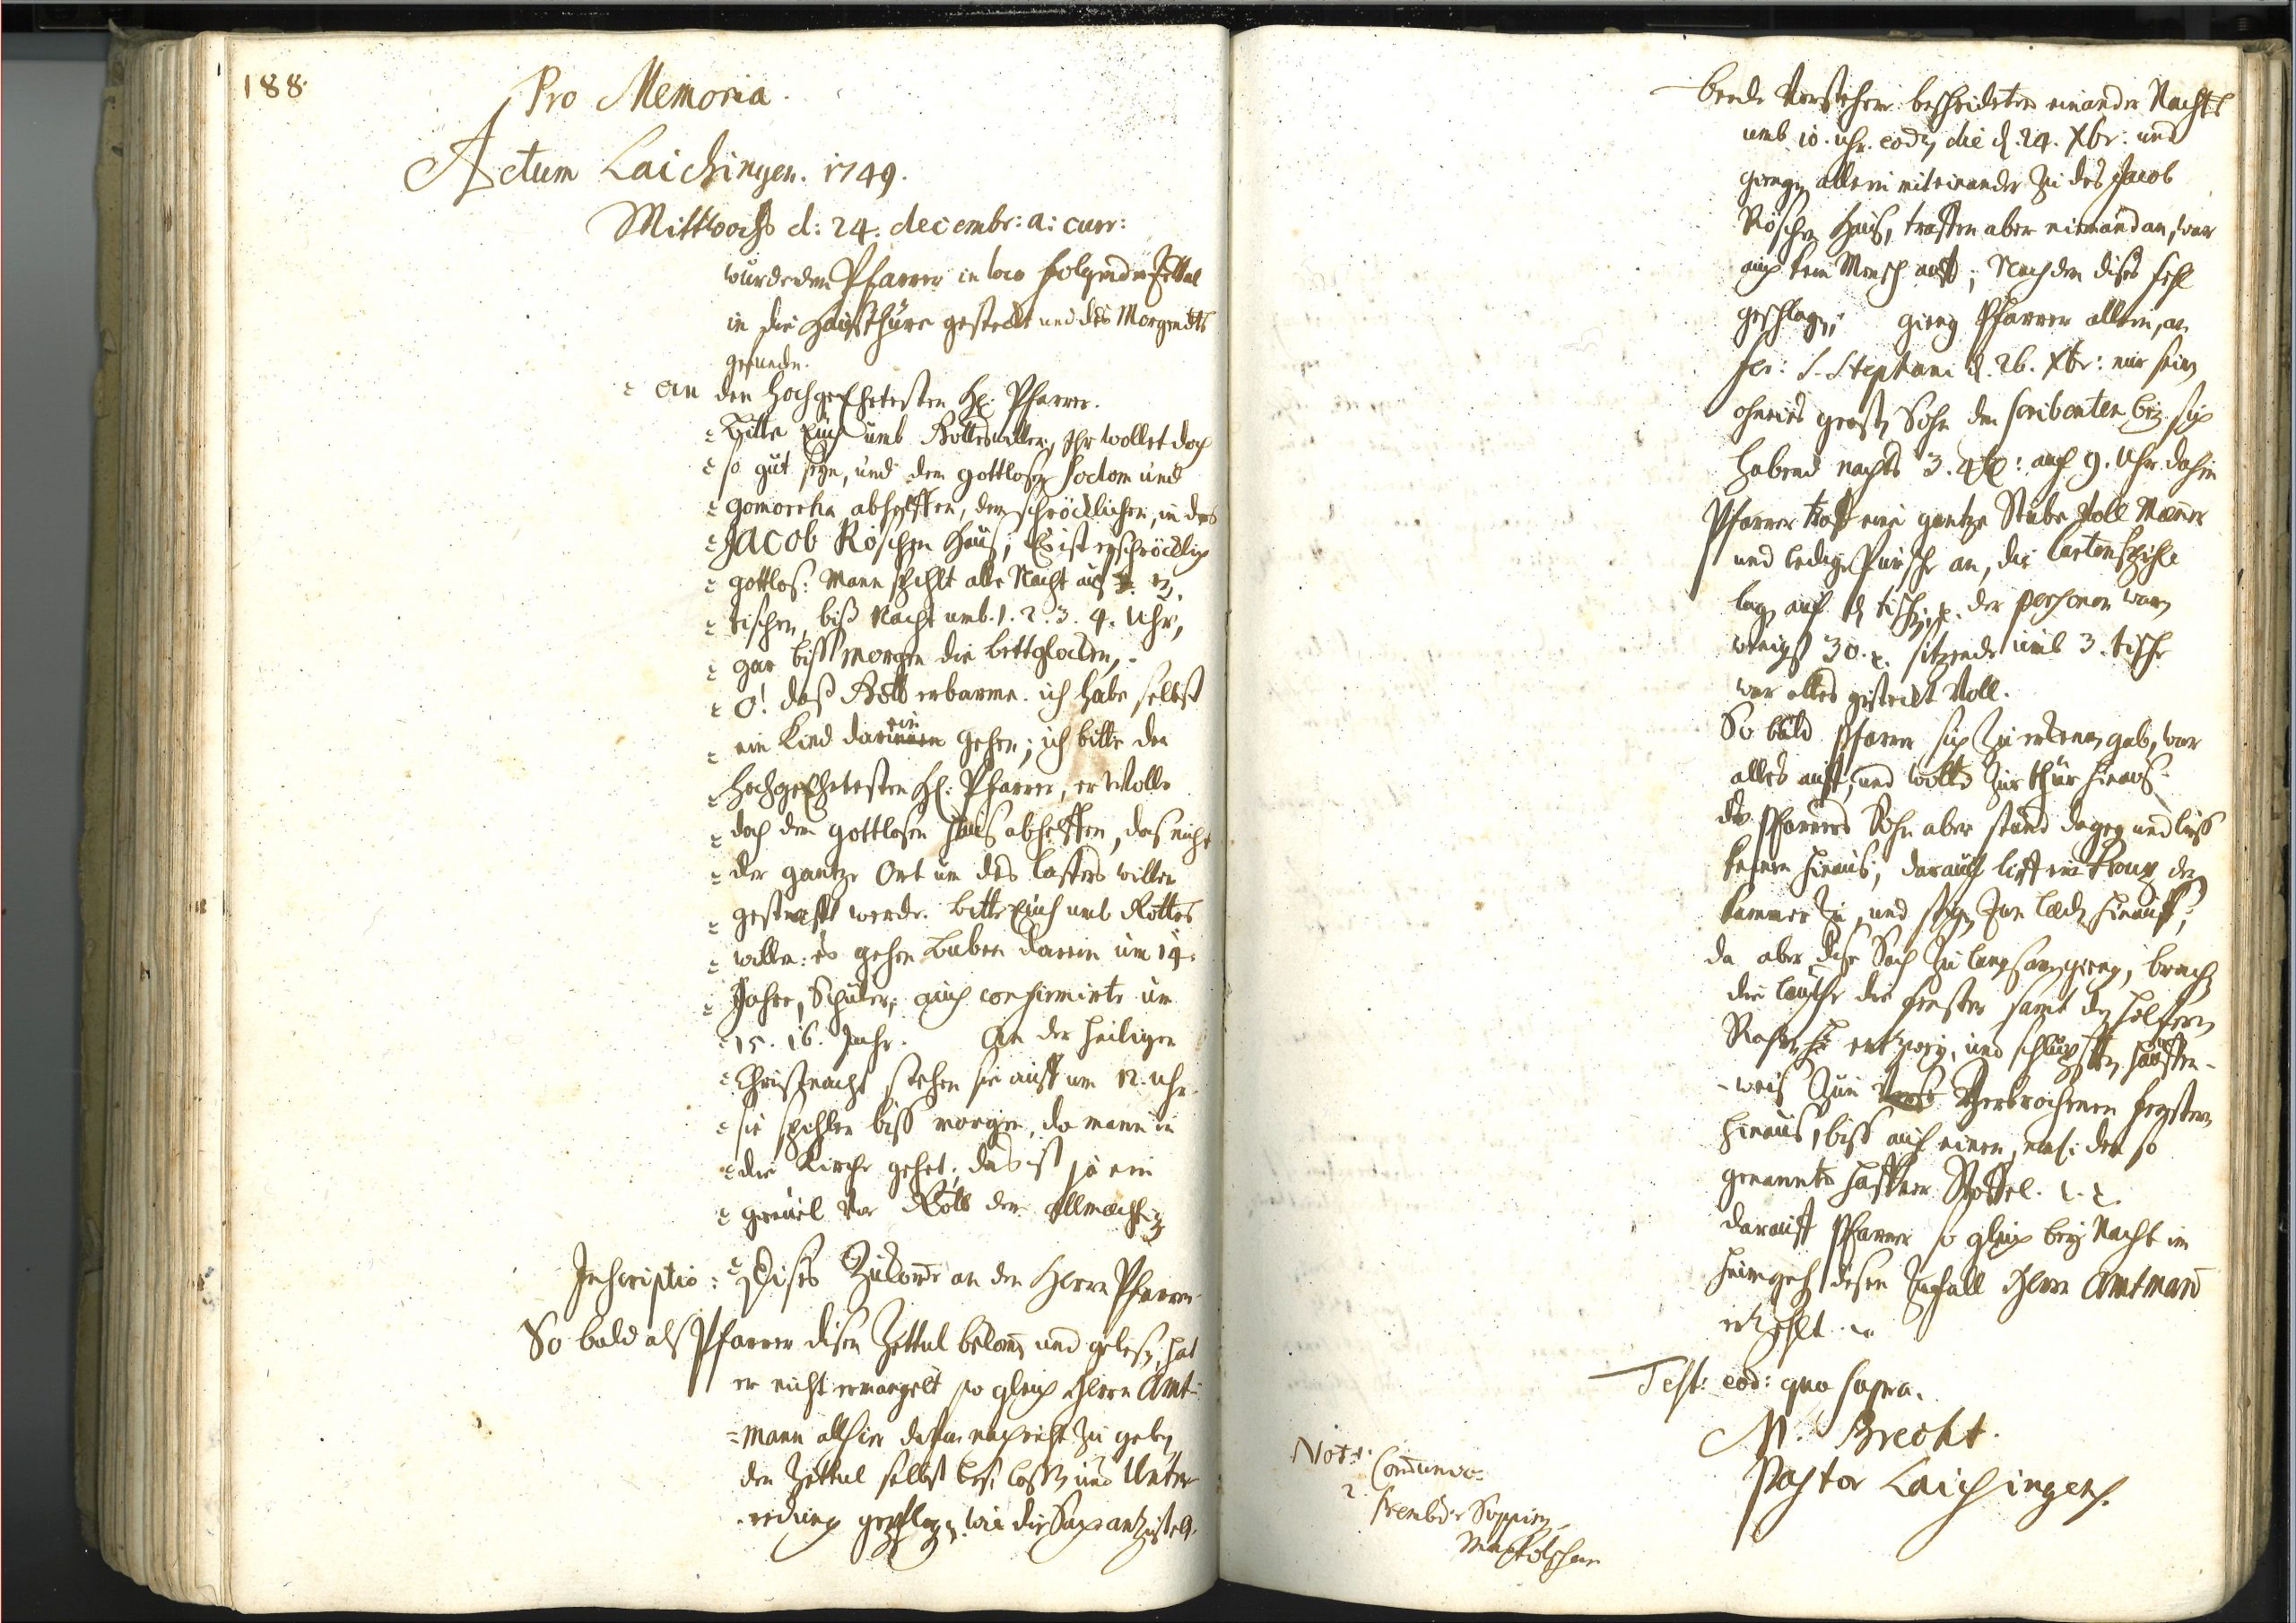 188.
Pro Memoria.
Actum Laichingen. 1749.
Mittwochs d: 24. decembr: a: curr:
wurde dem Pfarrer in loco folgender Zettul
in die Haußthüre gesteckt und des Morgendts
gefunden.
An den Hochgeehrtesten H. Pfarrer.
Bitte Euch umb Gotteswillen, Ihr wollet doch
so gut seyn, und dem gottlosen Sodom und
Gomorrha abhelffen, dem schröcklichen, in des
JACOB Röschen Hauß; Es ist erschröcklich
gottlos: Mann spihlt alle Nacht auf 3.
tischen, biß Nacht umb. 1. 2. 3. 4. Uhr,
gar biß morgen die bettglocken,
O! daß Gott erbarme. ich habe selbst
ein Kind darein gehen; ich bitte den
Hochgeehrtesten H. Pfarrer, er wolle
doch dem gottlosen Haus abhelffen, das nicht
der gantze Ort um des lasters willen
gestrafft werde. bitte Euch umb Gottes
willen: es gehen Buben darein um 14.
Jahre, Schüler, auch confirmirte um
15. 16. Jahr. An der heiligen
Christnacht stehen sie auff um 12. Uhr
sie spihlen biß morgen, da mann in
die Kirche gehet; das ist ja ein
greuel vor Gott dem Allmächtig
Inscriptio: Dises Zukome an den Herrn Pfarrer
So bald als Pfarrer disen Zettul bekomen und gelesen, hat
er nicht ermangelt so gleich Herrn Amt-
mann allhier davon nachricht zu geben
den Zettul selbst lesen lassen und Unter
redung gepflogen, wie die Sach anzustell.
beede Vorsteher bescheideten einander Nachts
umb 10. uhr. eod. die d. 24. Xbr: und
giengen allein miteinander zu des Jacob
Röschen Hauß, traffen aber niemand an, war
auch kein Mensch auff; Nachdem dises fehl
geschlagen, gieng Pfarrer allein, an
fer: S. Stephani d. 26. Xbr: nur sein
grosen Sohn den scribenten bey sich
habend nachts 3. auf 9. Uhr dahin
Pfarrer traff eine gantze Stube Voll Männer
und ledige Pursche an, die Cartenspihle
lagen auf den tischen, der personen waren
wenigst 30. sitzende umb 3. tische
war alles gesteckt Voll.
So bald Pfarrer sich zu erkennen gab, war
alles auff, und wolte zur thür hinaus
des Pfarrers Sohn aber stand dagegen und ließ
keinen hinaus; darauf lieff ein der
kammer zu, und stigen zum laden hinauß;
da aber dise Sach zu langsam gieng, brachen
die leuthe die fenster samt den
entzwey, und schlupfften hauffen-
weis zum Zerbrochenen fenster
hinaus, biß auf einen, der so
genannte Haffner Stoffel.
darauff Pfarrer so gleich bey Nacht im
heimgeh disen Zufall Herrn Amtmann
erzehlt.
Test: eod: quo supra.
M. Brecht.
Pastor Laichingens.
Not: 1.
2.